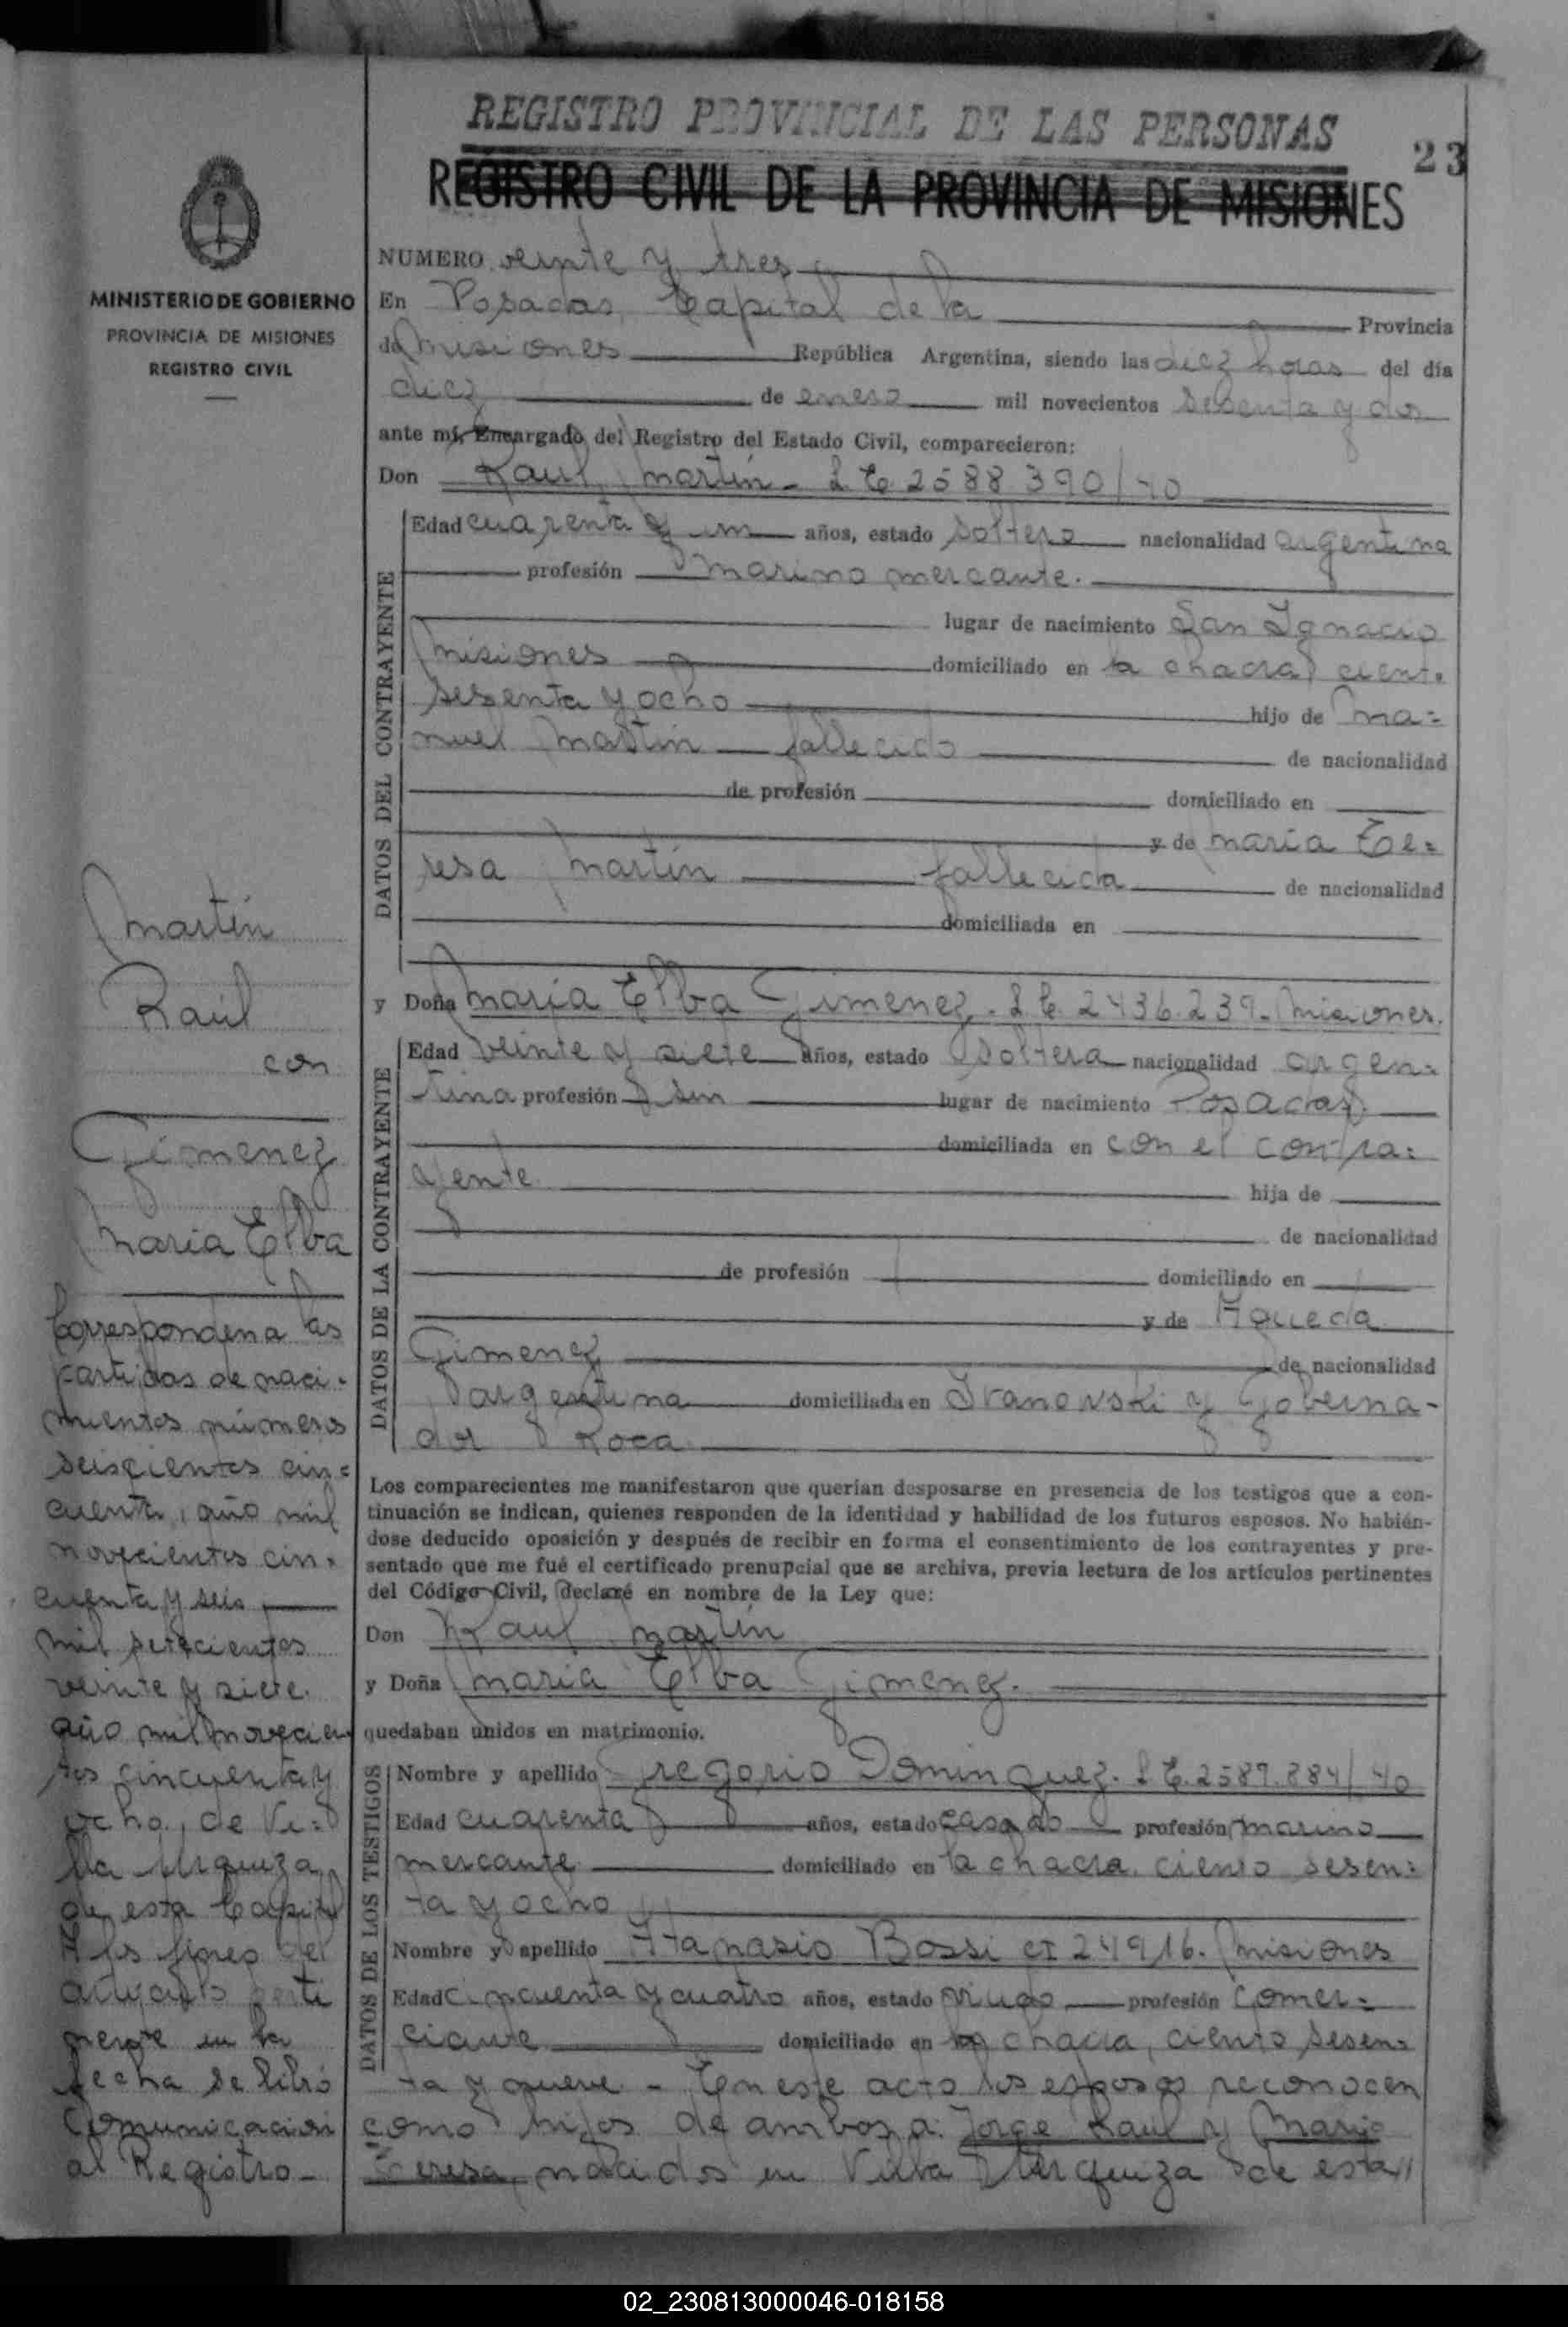 REGISTRO PROVINCIAL DE LAS PERSONAS
23
REGISTRO CIVIL DE LA PROVINCIA DE MISIONES
MINISTERIO DE GOBIERNO
PROVINCIA DE MISIONES
REGISTRO CIVIL
NUMERO veinte y tres
En Posadas, Capital de la Provincia
de Misiones República Argentina, siendo las diez horas del día
diez de enero mil novecientos sesenta y dos
ante mí, Encargado del Registro del Estado Civil, comparecieron:
Don Raul Martin - L E 2588390/40
DATOS DEL CONTRAYENTE
Edad cuarenta y un años, estado soltero nacionalidad argentina
profesión marino mercante.
lugar de nacimiento San Ignacio
Misiones domiciliado en la chacra ciento
sesenta y ocho hijo de Ma=
nuel Martin fallecido de nacionalidad
de profesión domiciliado en
y de Maria Te=
resa Martin fallecida de nacionalidad
domiciliada en
y Doña Maria Elba Gimenez. L C. 2436.239. Misiones.
DATOS DE LA CONTRAYENTE
Edad veinte y siete años, estado soltera nacionalidad argen=
tina profesión sin lugar de nacimiento Posadas
domiciliada en con el contra=
yente. hija de
de nacionalidad
de profesión domiciliado en
y de Agueda
Gimenez de nacionalidad
argentina domiciliada en Ivanovski y Goberna-
dor Roca.
Los comparecientes me manifestaron que querían desposarse en presencia de los testigos que a con-
tinuación se indican, quienes responden de la identidad y habilidad de los futuros esposos. No habién-
dose deducido oposición y después de recibir en forma el consentimiento de los contrayentes y pre-
sentado que me fué el certificado prenupcial que se archiva, previa lectura de los artículos pertinentes
del Código Civil, declaré en nombre de la Ley que:
Don Raul Martin
y Doña Maria Elba Gimenez.
quedaban unidos en matrimonio.
DATOS DE LOS TESTIGOS
Nombre y apellido Gregorio Dominguez. L E. 2587.884/40
Edad cuarenta años, estado casado profesión marino
mercante domiciliado en la chacra ciento sesen=
ta y ocho
Nombre y apellido Atanasio Bossi CI 24916. Misiones
Edad cincuenta y cuatro años, estado viudo profesión comer=
ciante domiciliado en la chacra, ciento sesen=
ta y nueve - En este acto los esposos reconocen
como hijos de ambos a: Jorge Raul y Maria
Teresa, nacidos en Villa Urquiza de esta//
Martin
Raúl
con
Gimenez
Maria Elba
Corresponden a las
partidas de naci-
mientos números
seiscientos cin=
cuenta, año mil
novecientos cin=
cuenta y seis
mil setecientos
veinte y siete.
año mil novecien
tos cincuenta y
ocho, de Vi=
lla Urquiza,
de esta Capital
A los fines del
artículo perti
nente en la
fecha se libró
Comunicación
al Registro -
02_230813000046-018158